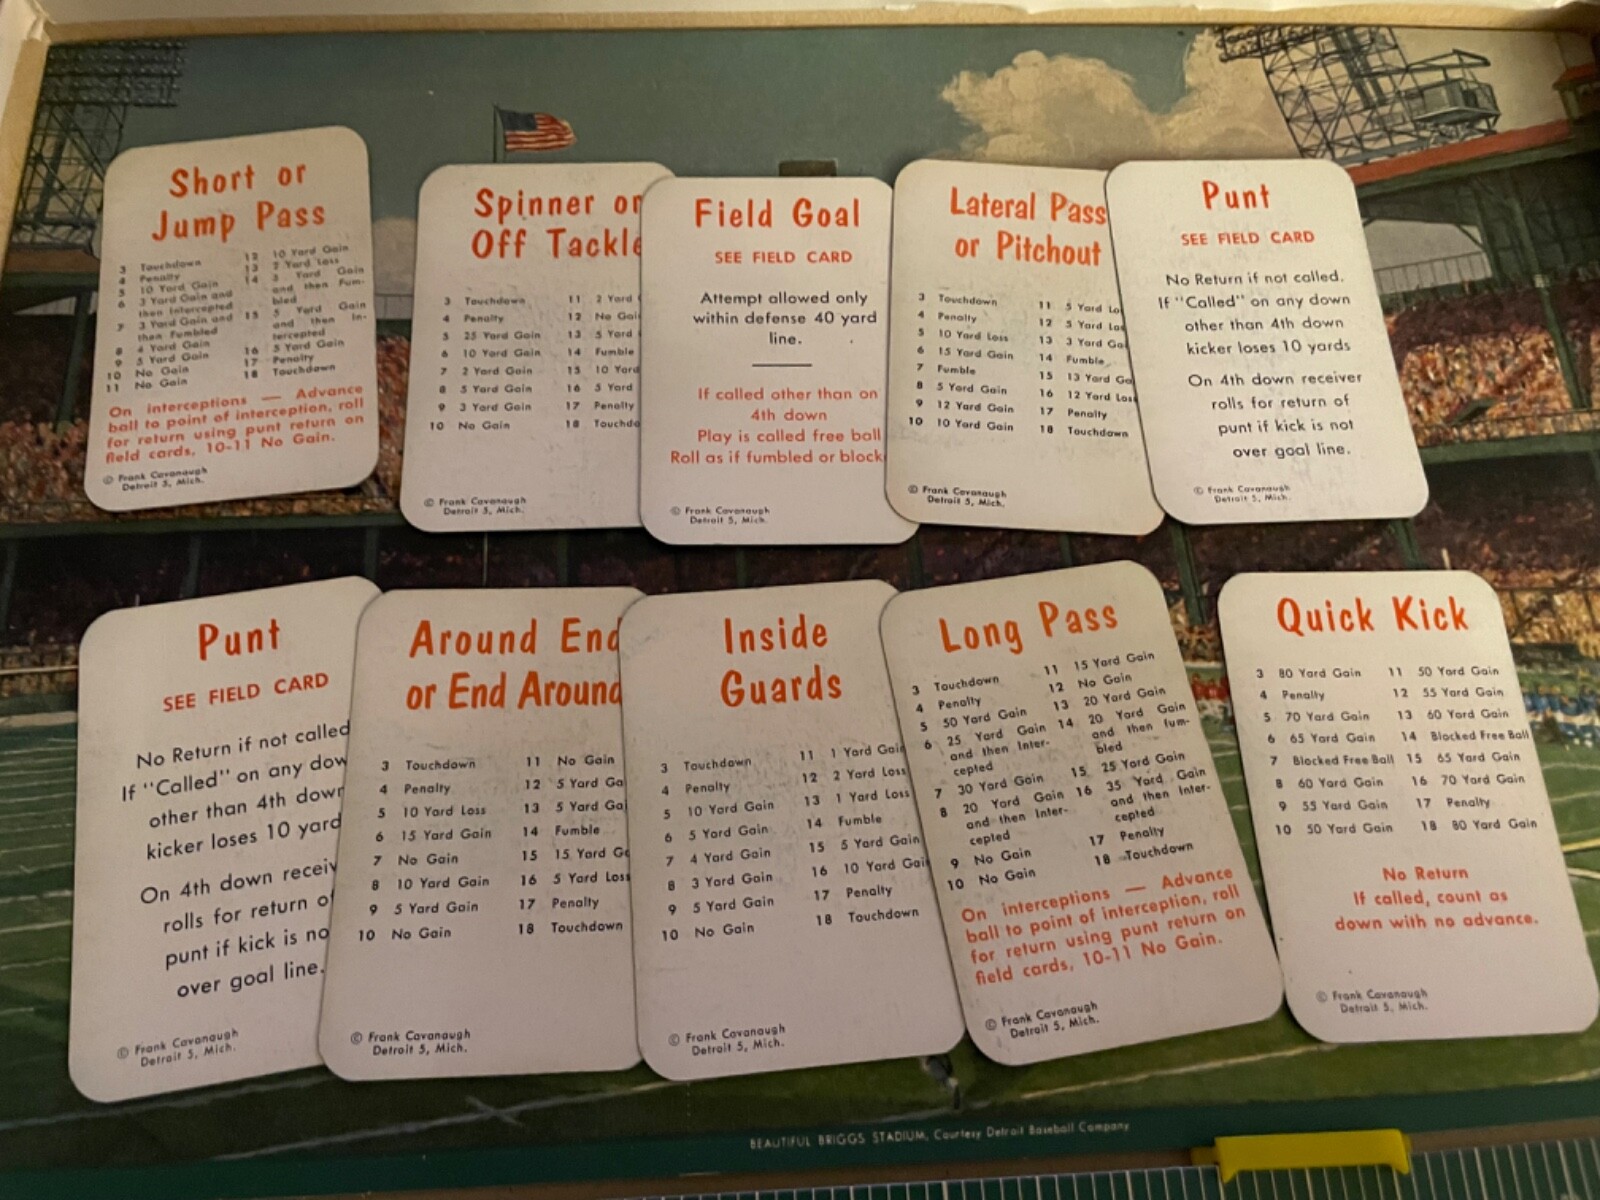 Short or
Jump Pass
3 Touchdown
4 Penalty
5 10 Yard Gain
6 3 Yard Gain and
then Intercepted
7 3 Yard Gain and
then Fumbled
8 4 Yard Gain
9 5 Yard Gain
10 No Gain
11 No Gain
12 10 Yard Gain
13 2 Yard Loss
14 3 Yard Gain
and then Fum-
bled
15 5 Yard Gain
and then In-
tercepted
16 5 Yard Gain
17 Penalty
18 Touchdown
On interceptions — Advance
ball to point of interception, roll
for return using punt return on
field cards, 10-11 No Gain.
© Frank Cavanaugh
Detroit 5, Mich.
Spinner or
Off Tackle
3 Touchdown
4 Penalty
5 25 Yard Gain
6 10 Yard Gain
7 2 Yard Gain
8 5 Yard Gain
9 3 Yard Gain
10 No Gain
11 2 Yard
12 No Gai
13 5 Yard
14 Fumble
15 10 Yard
16 5 Yard
17 Penalty
18 Touchdo
© Frank Cavanaugh
Detroit 5, Mich.
Field Goal
SEE FIELD CARD
Attempt allowed only
within defense 40 yard
line.
If called other than on
4th down
Play is called free ball
Roll as if fumbled or block
© Frank Cavanaugh
Detroit 5, Mich.
Lateral Pass
or Pitchout
3 Touchdown
4 Penalty
5 10 Yard Loss
6 15 Yard Gain
7 Fumble
8 5 Yard Gain
9 12 Yard Gain
10 10 Yard Gain
11 5 Yard Lo
12 5 Yard Los
13 3 Yard Ga
14 Fumble
15 13 Yard Ga
16 12 Yard Loss
17 Penalty
18 Touchdown
© Frank Cavanaugh
Detroit 5, Mich.
Punt
SEE FIELD CARD
No Return if not called.
If "Called" on any down
other than 4th down
kicker loses 10 yards
On 4th down receiver
rolls for return of
punt if kick is not
over goal line.
© Frank Cavanaugh
Detroit 5, Mich.
Punt
SEE FIELD CARD
No Return if not called
If "Called" on any dow
other than 4th down
kicker loses 10 yard
On 4th down receiv
rolls for return of
punt if kick is no
over goal line.
© Frank Cavanaugh
Detroit 5, Mich.
Around End
or End Around
3 Touchdown
4 Penalty
5 10 Yard Loss
6 15 Yard Gain
7 No Gain
8 10 Yard Gain
9 5 Yard Gain
10 No Gain
11 No Gain
12 5 Yard Ga
13 5 Yard Gai
14 Fumble
15 15 Yard Ga
16 5 Yard Loss
17 Penalty
18 Touchdown
© Frank Cavanaugh
Detroit 5, Mich.
Inside
Guards
3 Touchdown
4 Penalty
5 10 Yard Gain
6 5 Yard Gain
7 4 Yard Gain
8 3 Yard Gain
9 5 Yard Gain
10 No Gain
11 1 Yard Gain
12 2 Yard Loss
13 1 Yard Loss
14 Fumble
15 5 Yard Gain
16 10 Yard Gain
17 Penalty
18 Touchdown
© Frank Cavanaugh
Detroit 5, Mich.
Long Pass
3 Touchdown
4 Penalty
5 50 Yard Gain
6 25 Yard Gain
and then Inter-
cepted
7 30 Yard Gain
8 20 Yard Gain
and then Inter-
cepted
9 No Gain
10 No Gain
11 15 Yard Gain
12 No Gain
13 20 Yard Gain
14 20 Yard Gain
and then fum-
bled
15 25 Yard Gain
16 35 Yard Gain
and then Inter-
cepted
17 Penalty
18 Touchdown
On interceptions — Advance
ball to point of interception, roll
for return using punt return on
field cards, 10-11 No Gain.
© Frank Cavanaugh
Detroit 5, Mich.
Quick Kick
3 80 Yard Gain
4 Penalty
5 70 Yard Gain
6 65 Yard Gain
7 Blocked Free Ball
8 60 Yard Gain
9 55 Yard Gain
10 50 Yard Gain
11 50 Yard Gain
12 55 Yard Gain
13 60 Yard Gain
14 Blocked Free Ball
15 65 Yard Gain
16 70 Yard Gain
17 Penalty
18 80 Yard Gain
No Return
If called, count as
down with no advance.
© Frank Cavanaugh
Detroit 5, Mich.
BEAUTIFUL BRIGGS STADIUM, Courtesy Detroit Baseball Company